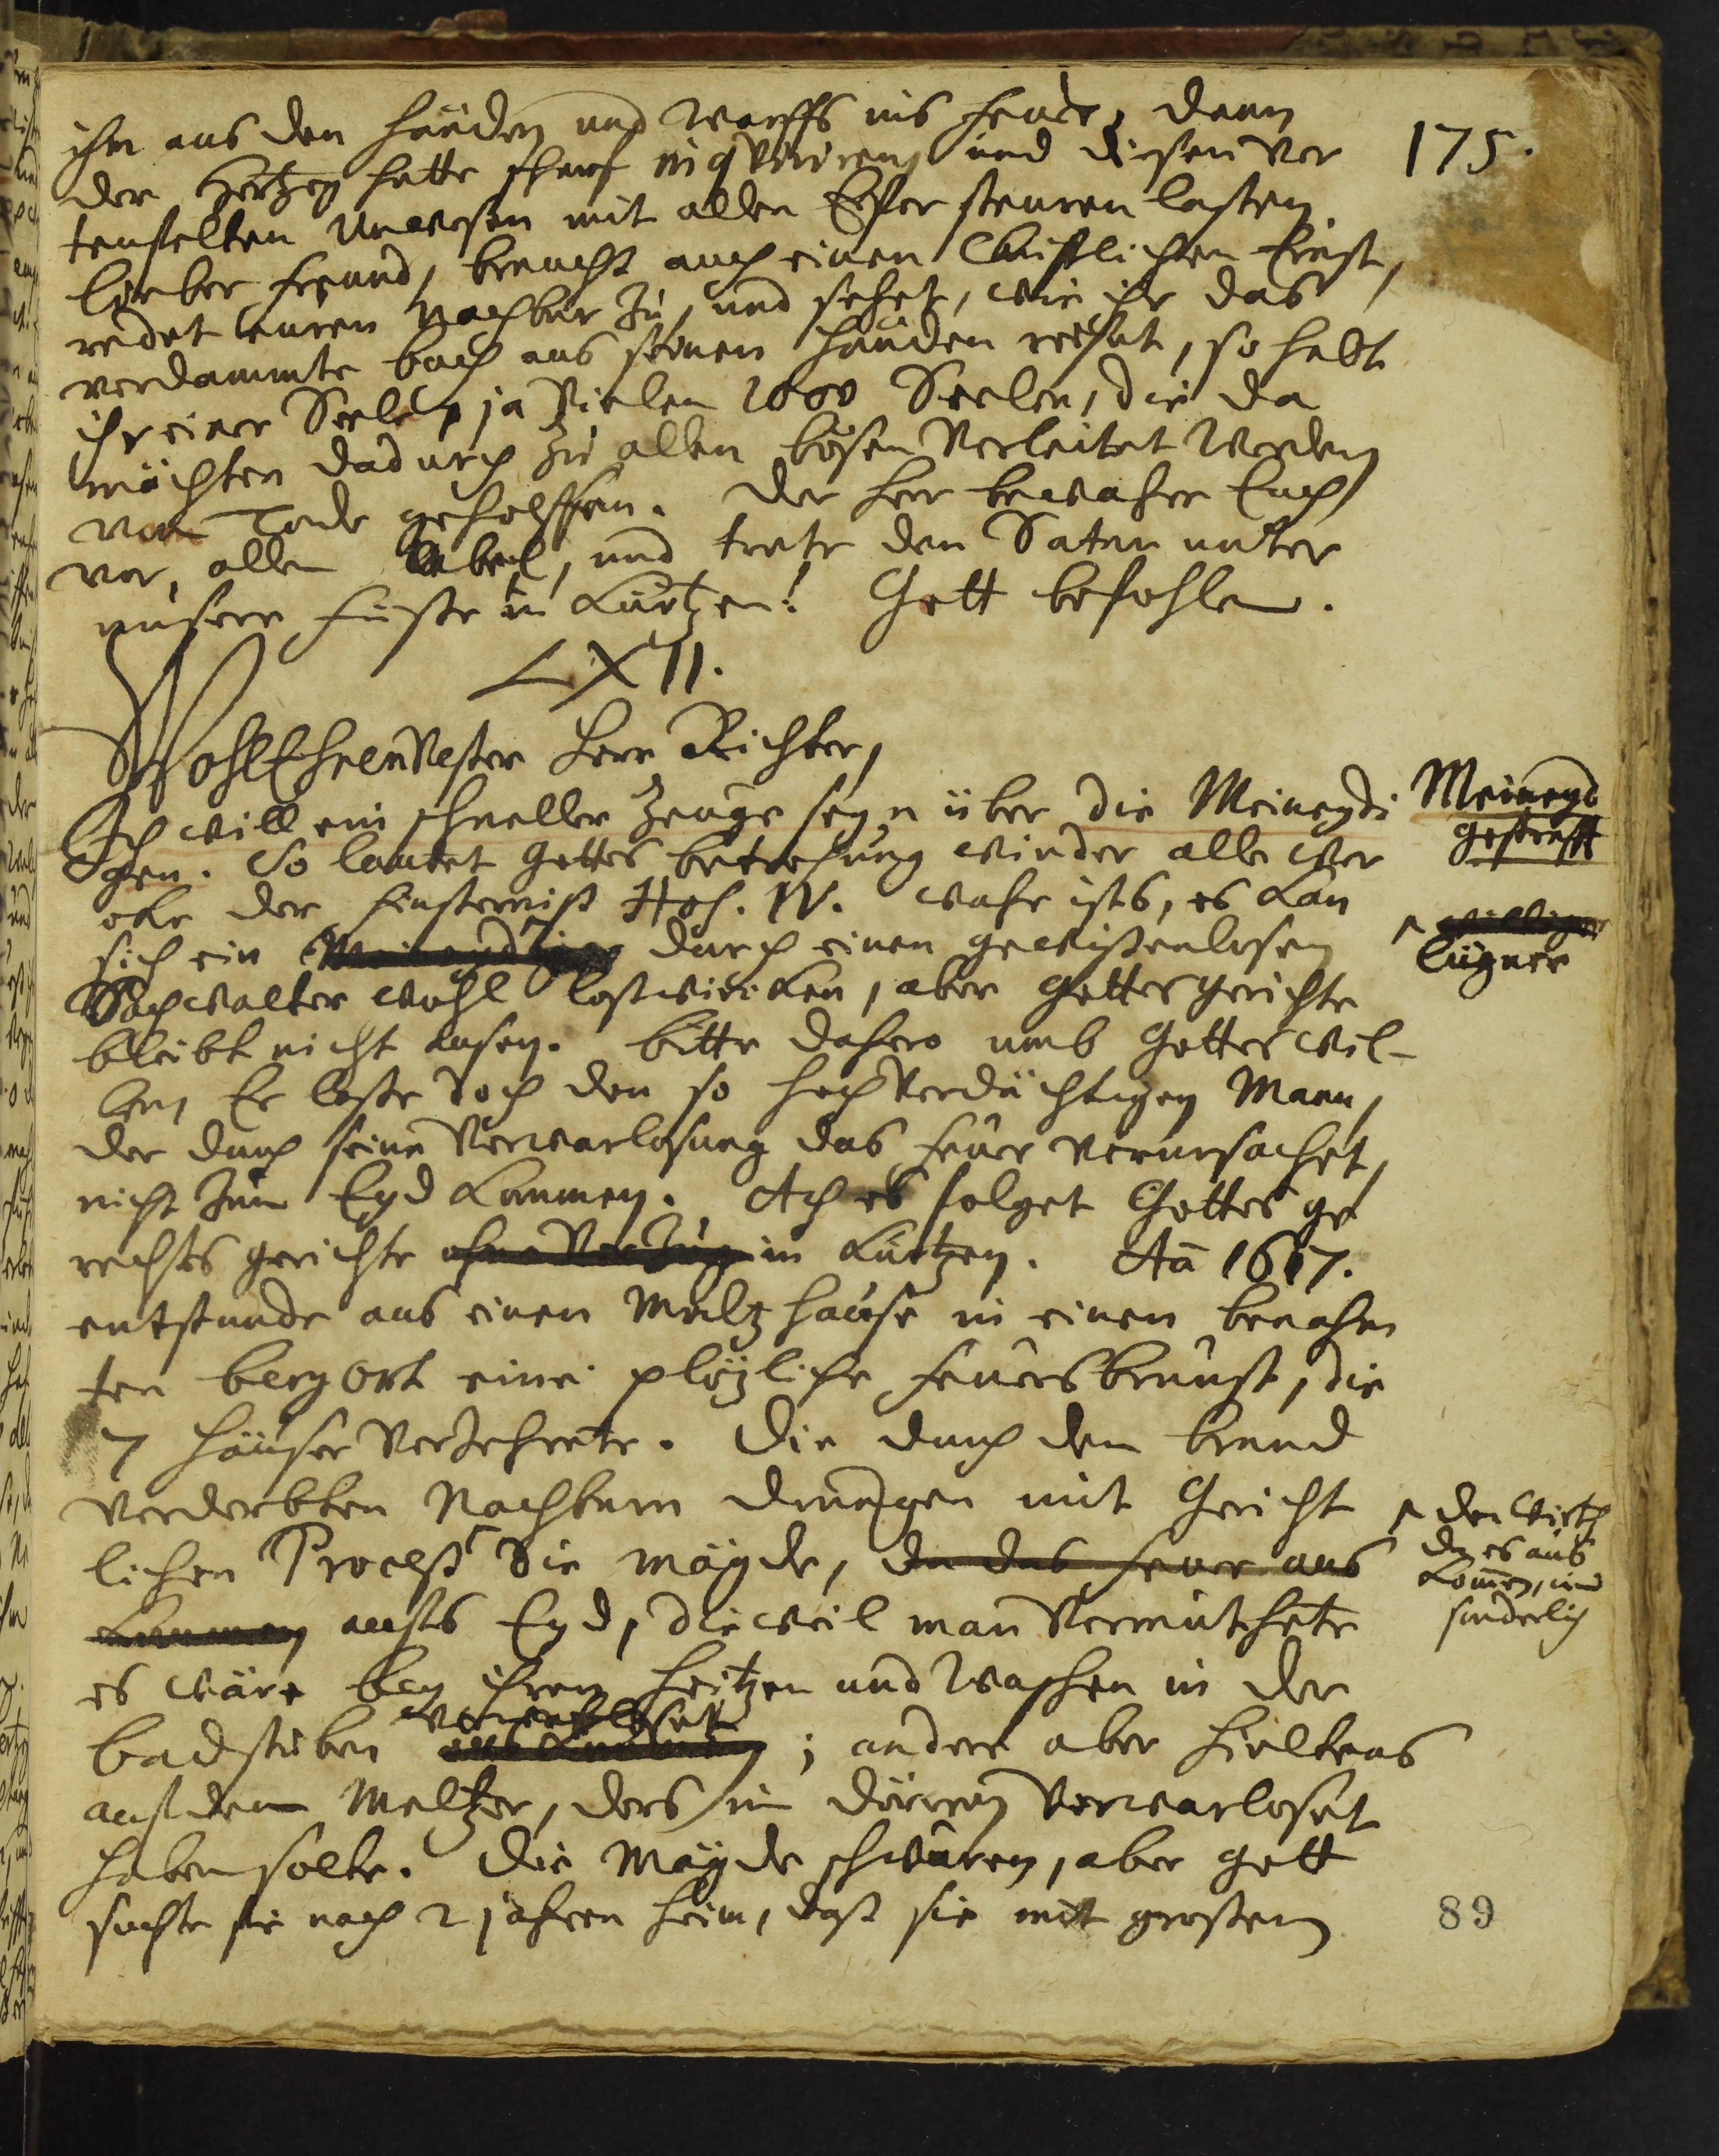 175.
ihm aus den Händen und warffs ins Feuer, denn
der Hertzog hatte scharf inqviriren und diesen ver
teufelten Unwesen mit allen Eyfer steuren lassen.
Lieber Freund, braucht auch einen Christlichen Ernst,
redet euren Nachbar zu, und sehet, wie ihr das
verdammte buch aus seinen Händen reisset, so habt
ihr einer Seele ja vielen 1000 Seelen, die da
möchten dadurch zu allen bösen verleitet werden
vom Tode geholffen. Der Herr bewahre Euch
vor allen Übel, und trete den Satan unter
unsere Füsse in Kürtzen! Gott befohlen.
LXII.
WohlEhrenVester Herr Richter,
Ich will ein schneller Zeuge seyn über die Meineydi
gen. So lautet Gottes betrohung wieder alle wer
cke der Finsterniß Hos. IV. wahr ists, es kan
sich ein Meineydiger durch einen gewissenlosen
Sachwalter wohl loßwircken, aber Gottes gerichte
bleibt nicht aussen. bitte dahero umb Gottes wil-
len, Er lasse doch den so hochverdächtigen Mann,
der durch seine Verwarlosung das Feuer verursachet,
nicht zum Eyd kommen. Ach es folget Gottes ge
rechtes gerichte ohne Verzug in Kürtzen. Aõ 1617.
entstunde aus einen Maltzhause in einen benahm
ten berg Ort eine plözliche Feuersbrunst, die
7 Häuser verzehrete. Die durch den brand
verderbten Nachbarn drungen mit Gericht
lichen Proceß die Mägde, da das Feuer aus
kommen auffs Eyd, dieweil man vermuthete
es wäre bey ihren Heitzen und waschen in der
verwarloset
badstuben auskommen; andere aber hieltens
auf den Meltzer, ders im dörren verwarloset
haben solte. Die Mägde schwuren, aber Gott
suchte sie nach 2 jahren heim, daß sie mit grossem
Meineyd
gestrafft
Lügner
den Wirth
da es aus
kom̄en, und
sonderlich
89